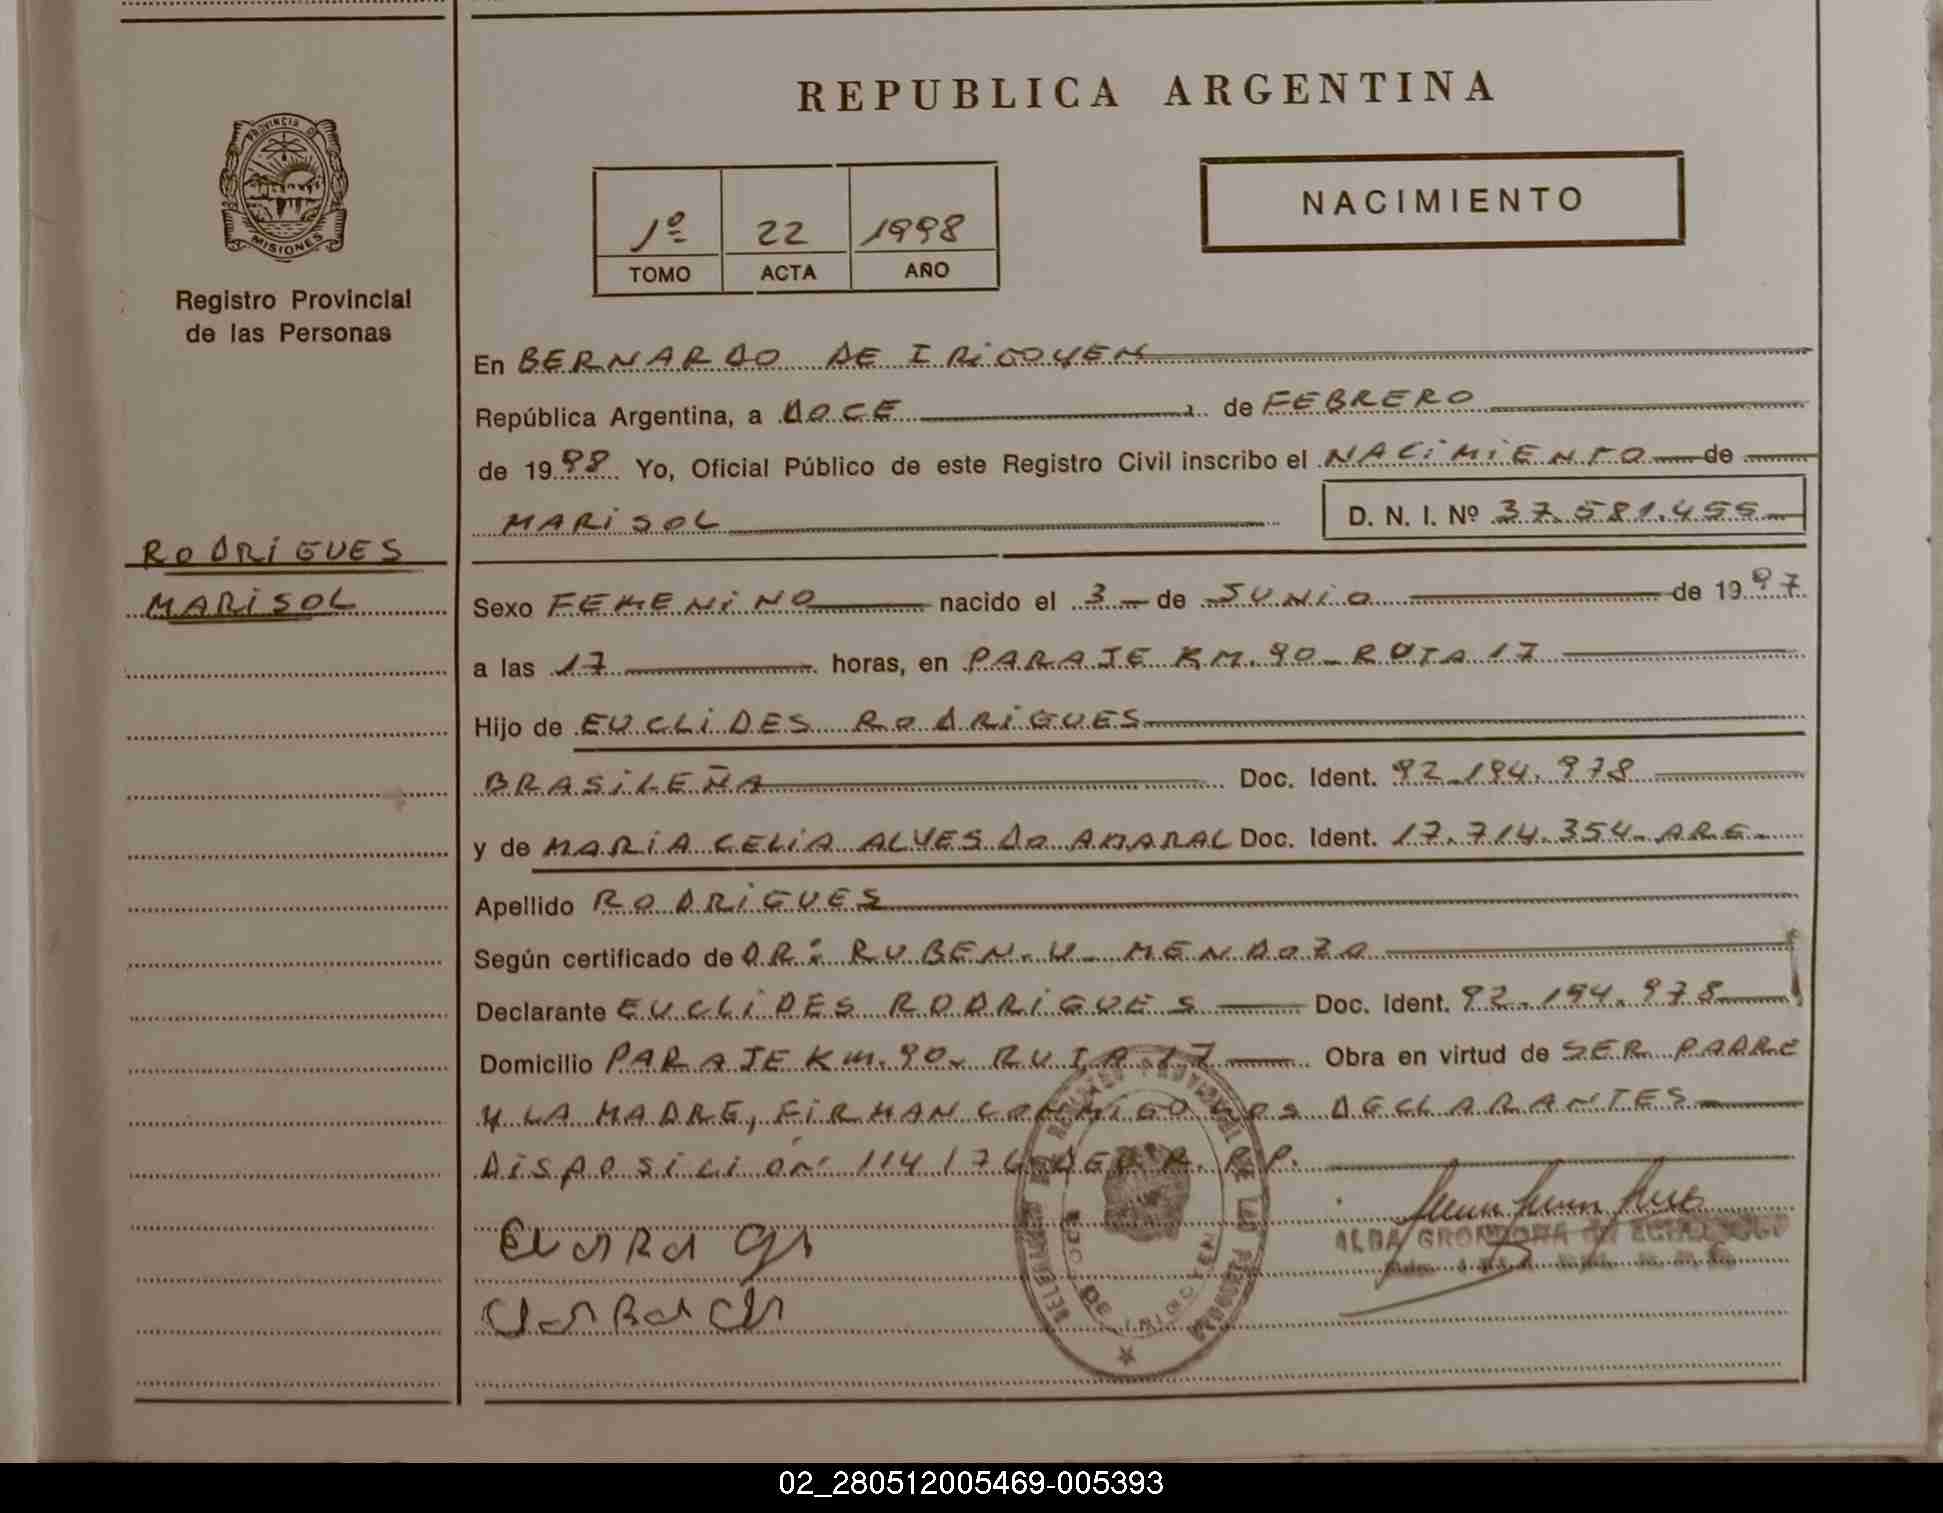 REPUBLICA ARGENTINA
PROVINCIA D
MISIONES
Registro Provincial
de las Personas
1º 22 1998
TOMO ACTA AÑO
NACIMIENTO
En BERNARDO DE IRIGOYEN
República Argentina, a DOCE de FEBRERO
de 1998 Yo, Oficial Público de este Registro Civil inscribo el NACIMIENTO de
MARISOL D. N. I. Nº 37.581.455
RODRIGUES
MARISOL
Sexo FEMENINO nacido el 3 de JUNIO de 1997
a las 17 horas, en PARAJE KM. 90 - RUTA 17
Hijo de EUCLIDES RODRIGUES
BRASILEÑA Doc. Ident. 92.194.978
y de MARIA CELIA ALVES DO AMARAL Doc. Ident. 17.714.354 - ARG.-
Apellido RODRIGUES
Según certificado de DR: RUBEN. U. MENDOZA
Declarante EUCLIDES RODRIGUES Doc. Ident. 92.194.978
Domicilio PARAJE KM. 90 - RUTA 17 Obra en virtud de SER PADRE
Y LA MADRE, FIRMAN CONMIGO LOS DECLARANTES
DISPOSICIÓN 114/76 DEL R. P. P.
ALBA GRONDONA de
02_280512005469-005393